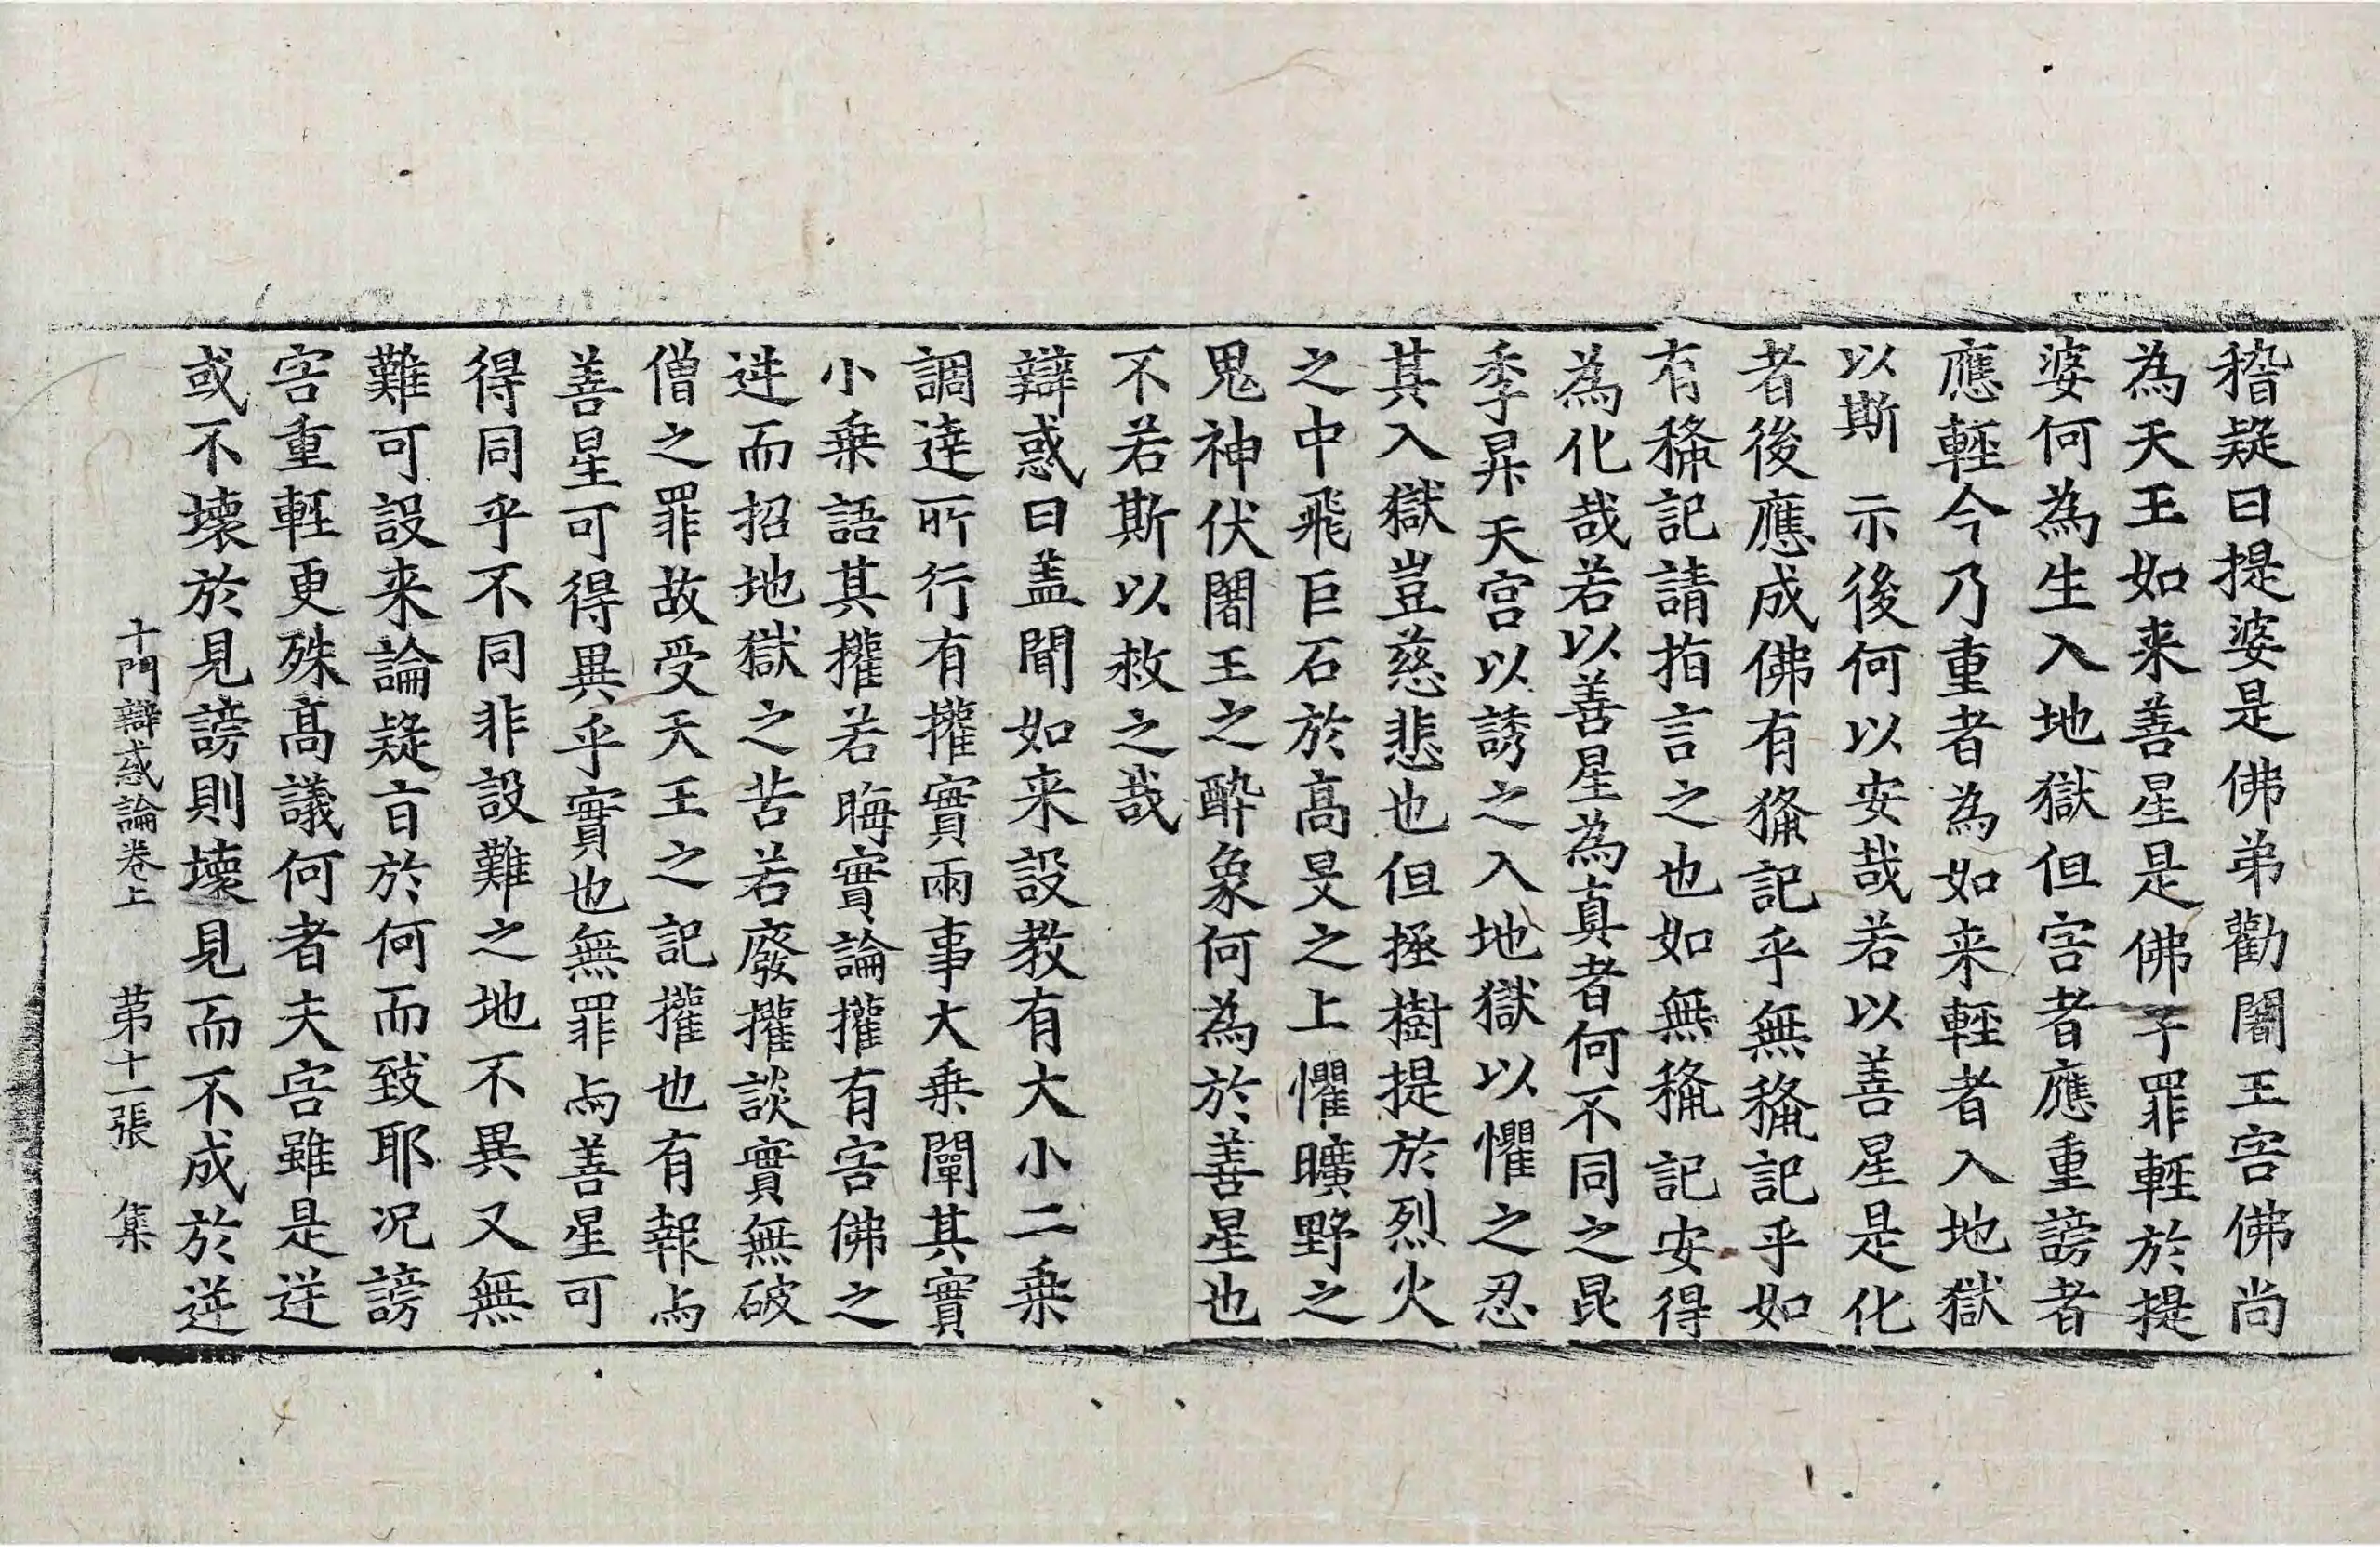 稽疑曰提婆是佛弟勸闍王害佛尚
為天王如来善星是佛子罪輕於提
婆何為生入地獄但害者應重謗者
應輕今乃重者為如来輕者入地獄
以斯示後何以安哉若以善星是化
者後應成佛有授記乎無授記乎如
有授記請指言之也如無授記安得
為化哉若以善星為真者何不同之昆
季昇天宮以誘之入地獄以懼之忍
其入獄豈慈悲也但拯樹提於烈火
之中飛巨石於高旻之上懼曠野之
鬼神伏闍王之醉象何為於善星也
不若斯以救之哉
辯惑曰盖聞如来設教有大小二乗
調達所行有權實兩事大乗闡其實
小乗語其權若晦實論權有害佛之
逆而招地獄之苦若廢權談實無破
僧之罪故受天王之記權也有報与
善星可得異乎實也無罪与善星可
得同乎不同非設難之地不異又無
難可設来論疑盲於何而致耶况謗
害重輕更殊高議何者夫害雖是逆
或不壊於見謗則壊見而不成於逆
十門辯惑論卷上 苐十一張 集